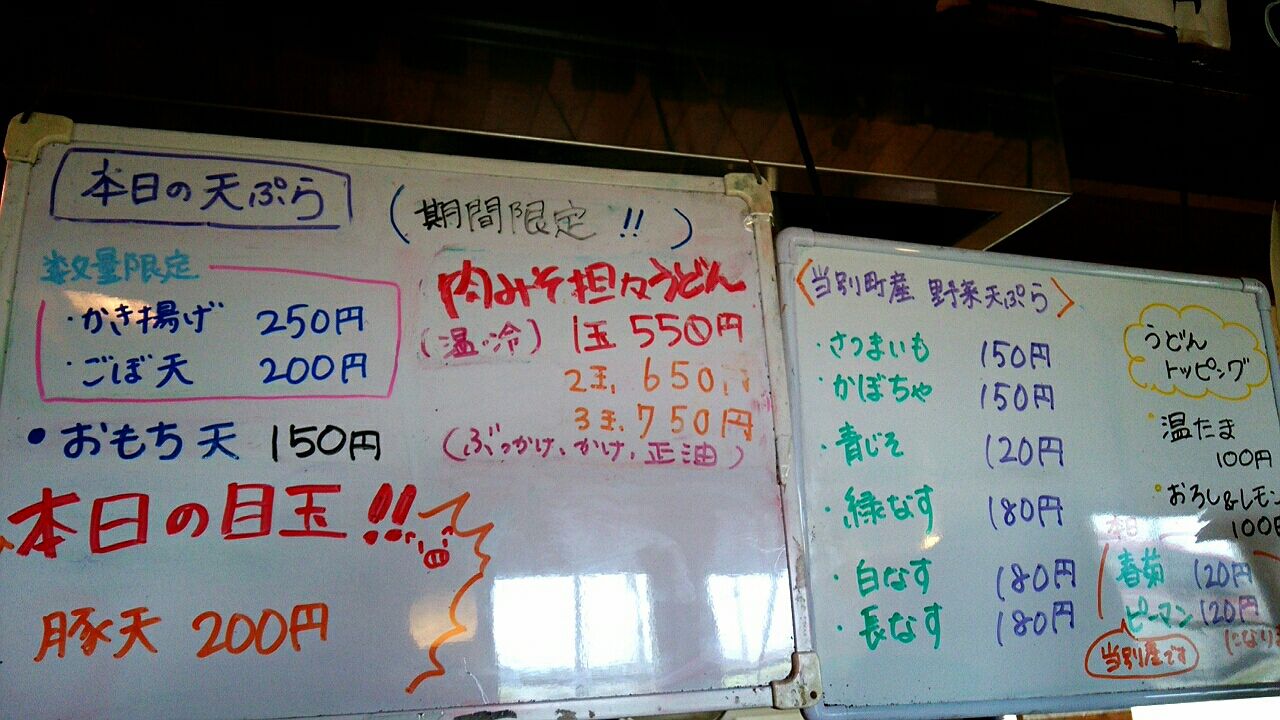 本日の天ぷら
数量限定
・かき揚げ 250円
・ごぼ天 200円
・おもち天 150円
本日の目玉!!
豚天 200円
(期間限定!!)
肉みそ担々うどん
(温・冷) 1玉 550円
2玉、650円
3玉、750円
(ぶっかけ、かけ、正油)
〈当別町産 野菜天ぷら〉
・さつまいも 150円
・かぼちゃ 150円
・青じそ 120円
・緑なす 180円
・白なす 180円
・長なす 180円
うどん
トッピング
・温たま
100円
・おろし&レモン
100円
本日
春菊 120円
ピーマン 120円
当別産です